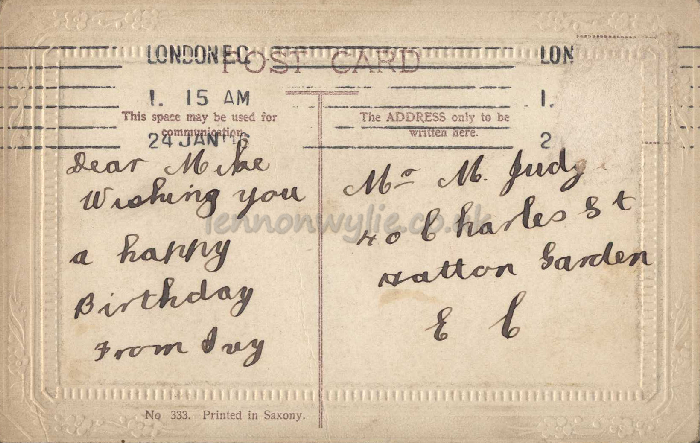 LONDON E.C.
LON
POST CARD
1. 15 AM
1.
This space may be used for
communication.
The ADDRESS only to be
written here.
24 JAN 16
2
Dear Mike
Wishing you
a happy
Birthday
From Ivy
Mr M. Judg
40 Charles St
Hatton Garden
E C
lennonwylie.co.uk
No 333. Printed in Saxony.